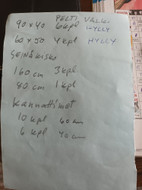 PELTI VALK.
90 x 40 6 kpl HYLLY
60 x 50 4 kpl HYLLY
SEINÄKISKO
160 cm 3 kpl
80 cm 1 kpl
Kannattimet
10 kpl 60 cm
6 kpl 40 cm